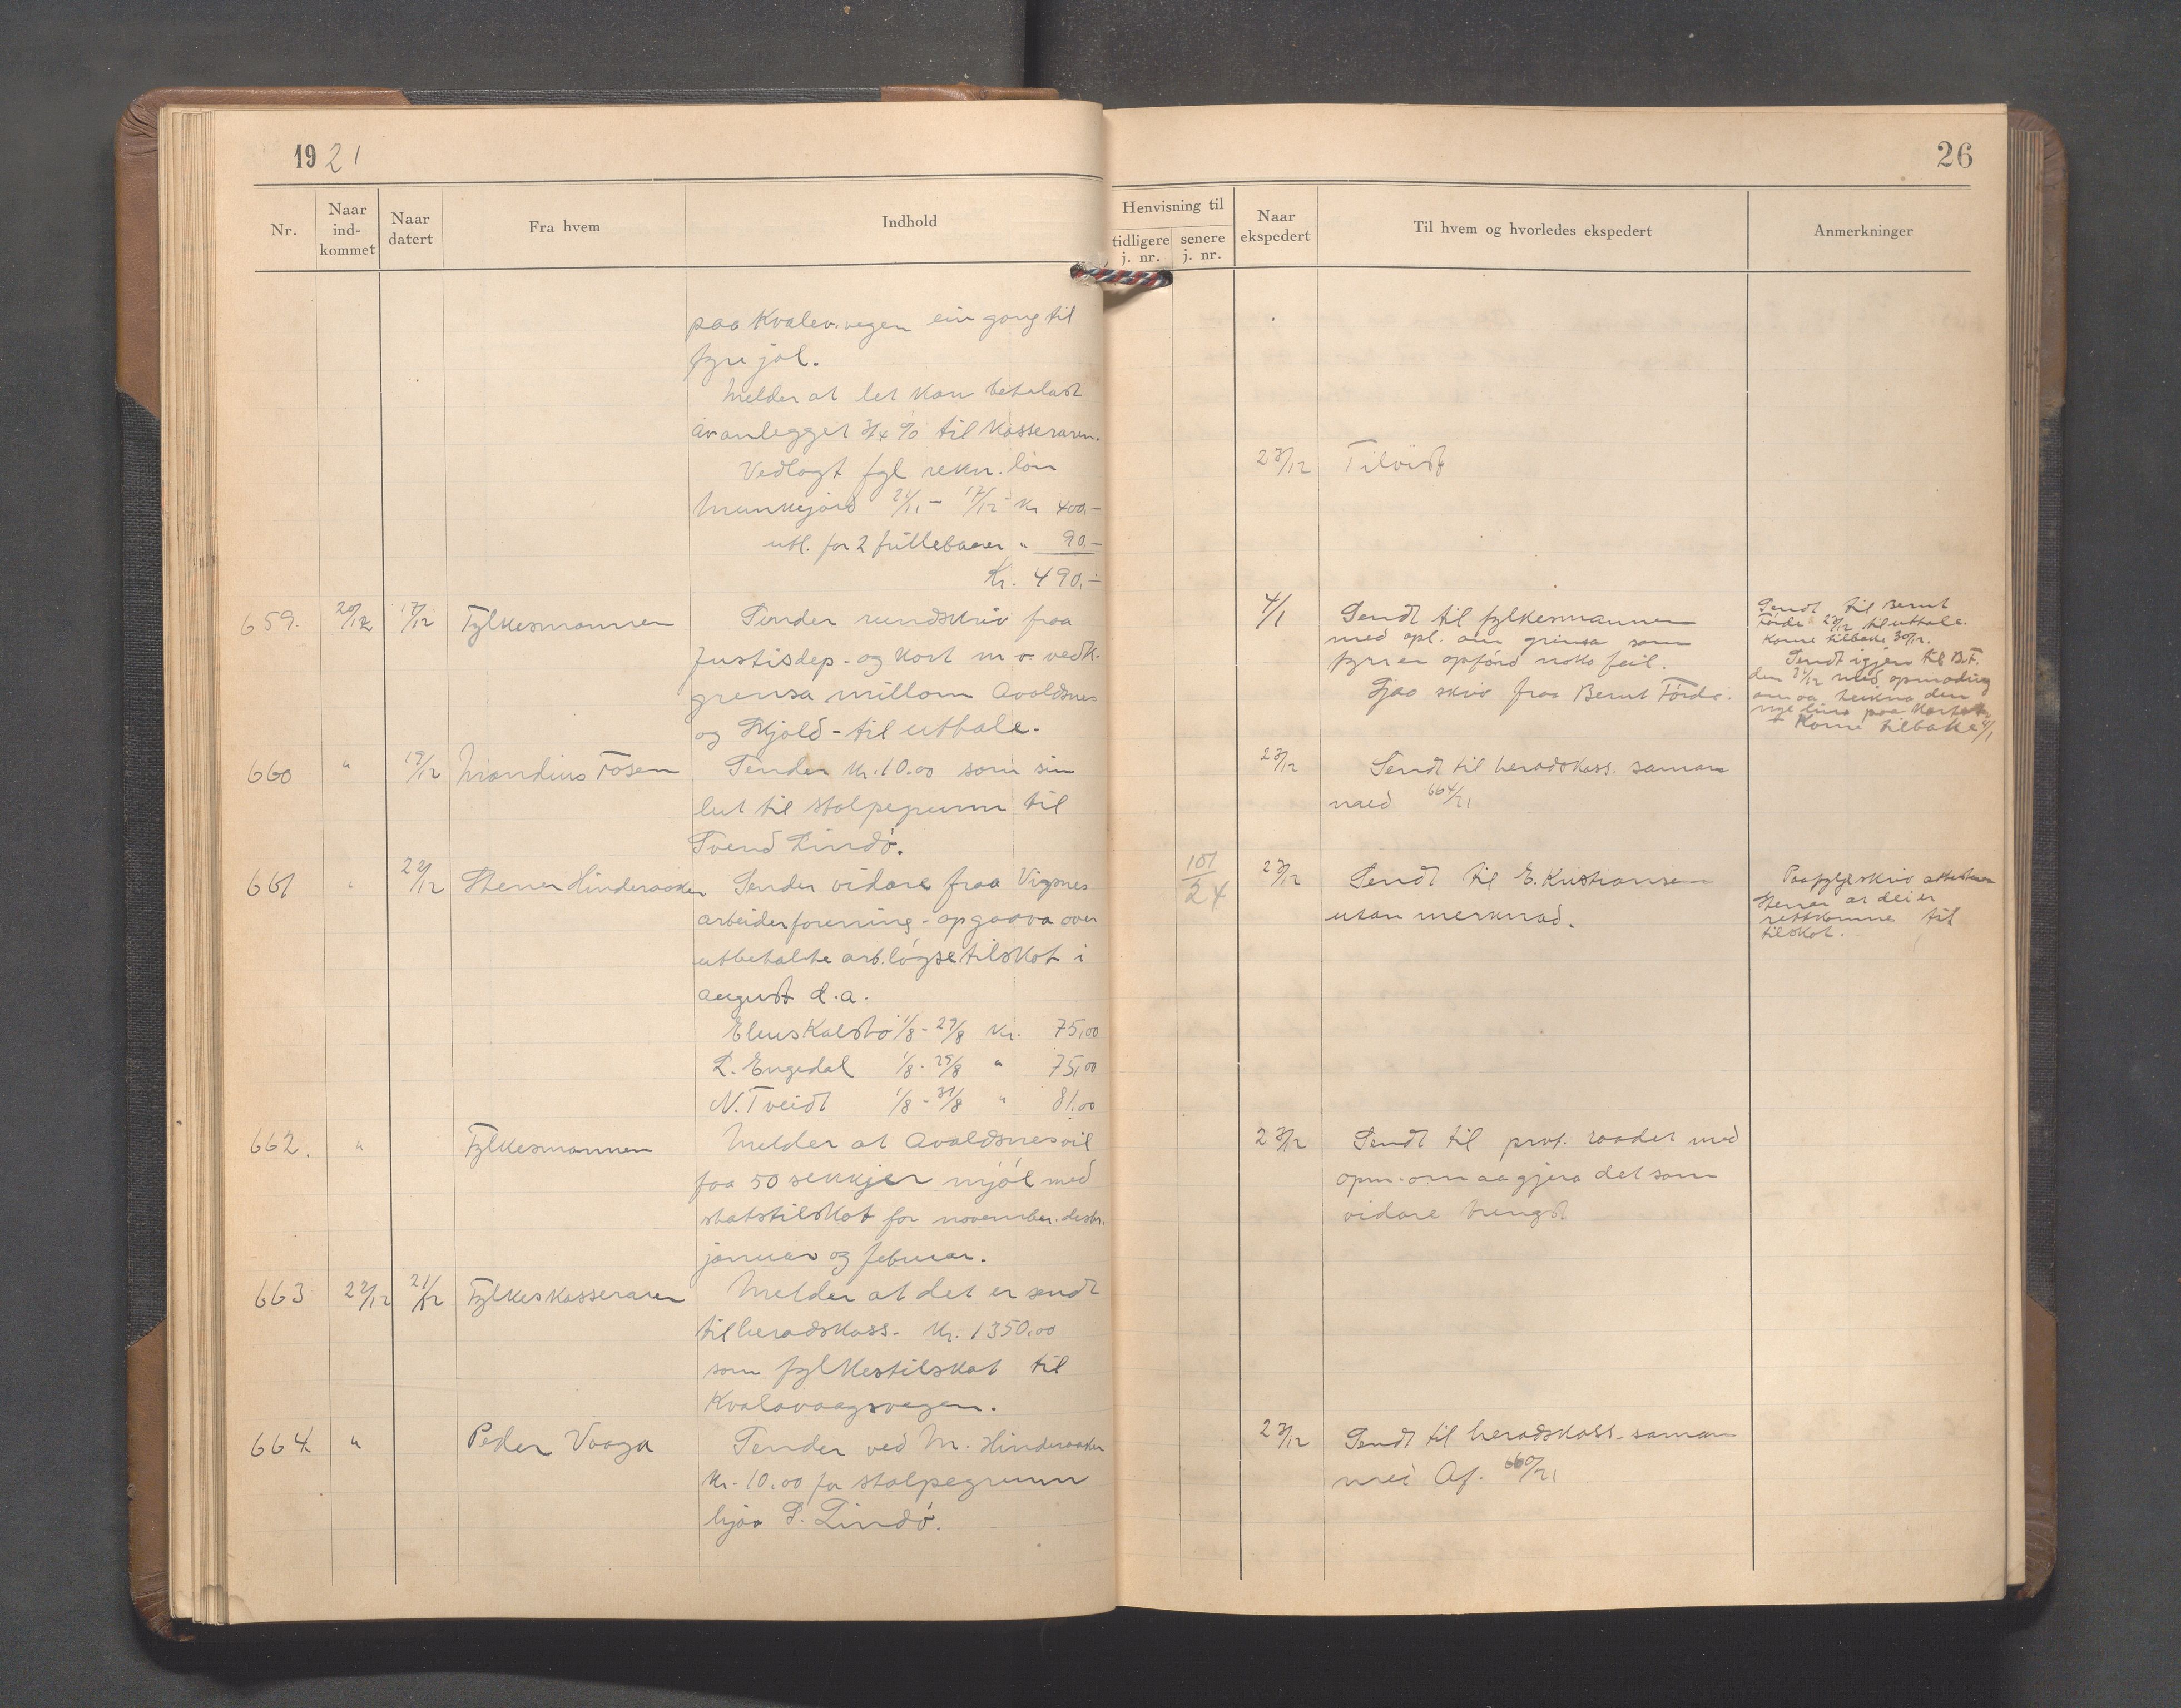 1921
26
Nr.
Naar ind-kommet
Naar datert
Fra hvem
Indhold
Henvisning til
tidligere j. nr.
senere j. nr.
Naar ekspedert
Til hvem og hvorledes ekspedert
Anmerkninger
paa Kvalev.vegen ein gong til
fyre jol.
Melder at let kan betalast
av anlegget 3/4 % til kasseraren.
Vedlagt fyl rekn. lön
Munkejord 21/11 - 17/12 Kr 400,-
utl. for 2 trillebaarer " 90,-
Kr. 490,-
23/12 Tilvist
659. 20/12 17/12 Fylkesmannen
Sender rundskriv fraa
Justisdep. og kort m.v. vedk.
grensa millom Avaldsnes
og Skjold - til uttale.
4/1 Sendt til fylkesmannen
med opl. om grensa som
fyrr er opförd noko feil.
Sjaa skriv fraa Bernt Förde.
Sendt til Bernt
Förde 23/12 til uttale.
Kome tilbake 30/12.
Sendt igjen til B.F.
den 31/12 med opmoding
om aa teikna den
nye lina paa kartet
+ Kome tilbake 4/1
660 " 19/12 Mandius Fosen
Sender Kr. 10.00 som sin
lut til stolpegrunn til
Svend Lindö.
23/12 Sendt til heradskass. saman
med 664/21
661 " 22/12 Stener Hinderaaker
Sender vidare fraa Vigsnes
arbeiderforening - opgaava over
utbetalte arb.lögsetilskot i
august d.a.
Elius Kalstö 1/8 - 29/8 Kr. 75,00
L. Engedal 1/8 - 29/8 " 75,00
N. Tveidt 1/8 - 31/8 " 81.00
101/24
23/12 Sendt til E. Kristiansen
utan merknad.
Paafylgj. skriv attesterer
Stener at dei er
rettkomne til
tilskot.
662. " Fylkesmannen
Melder at Avaldsnes vil
faa 50 sekkjer mjöl med
statstilskot for november, desbr.
januar og februar.
23/12 Sendt til prov. raadet med
opm. om aa gjera det som
vidare trengst
663 22/12 21/12 Fylkeskasseraren
Melder at det er sendt
til heradskass. Kr. 1350.00
som fylkestilskot til
Kvalavaagsvegen.
664 " Peder Vaaga
Sender ved M. Hinderaaker
Kr. 10.00 for stolpegrunn
hjaa S. Lindö.
23/12 Sendt til heradskass. saman
med Af. 660/21